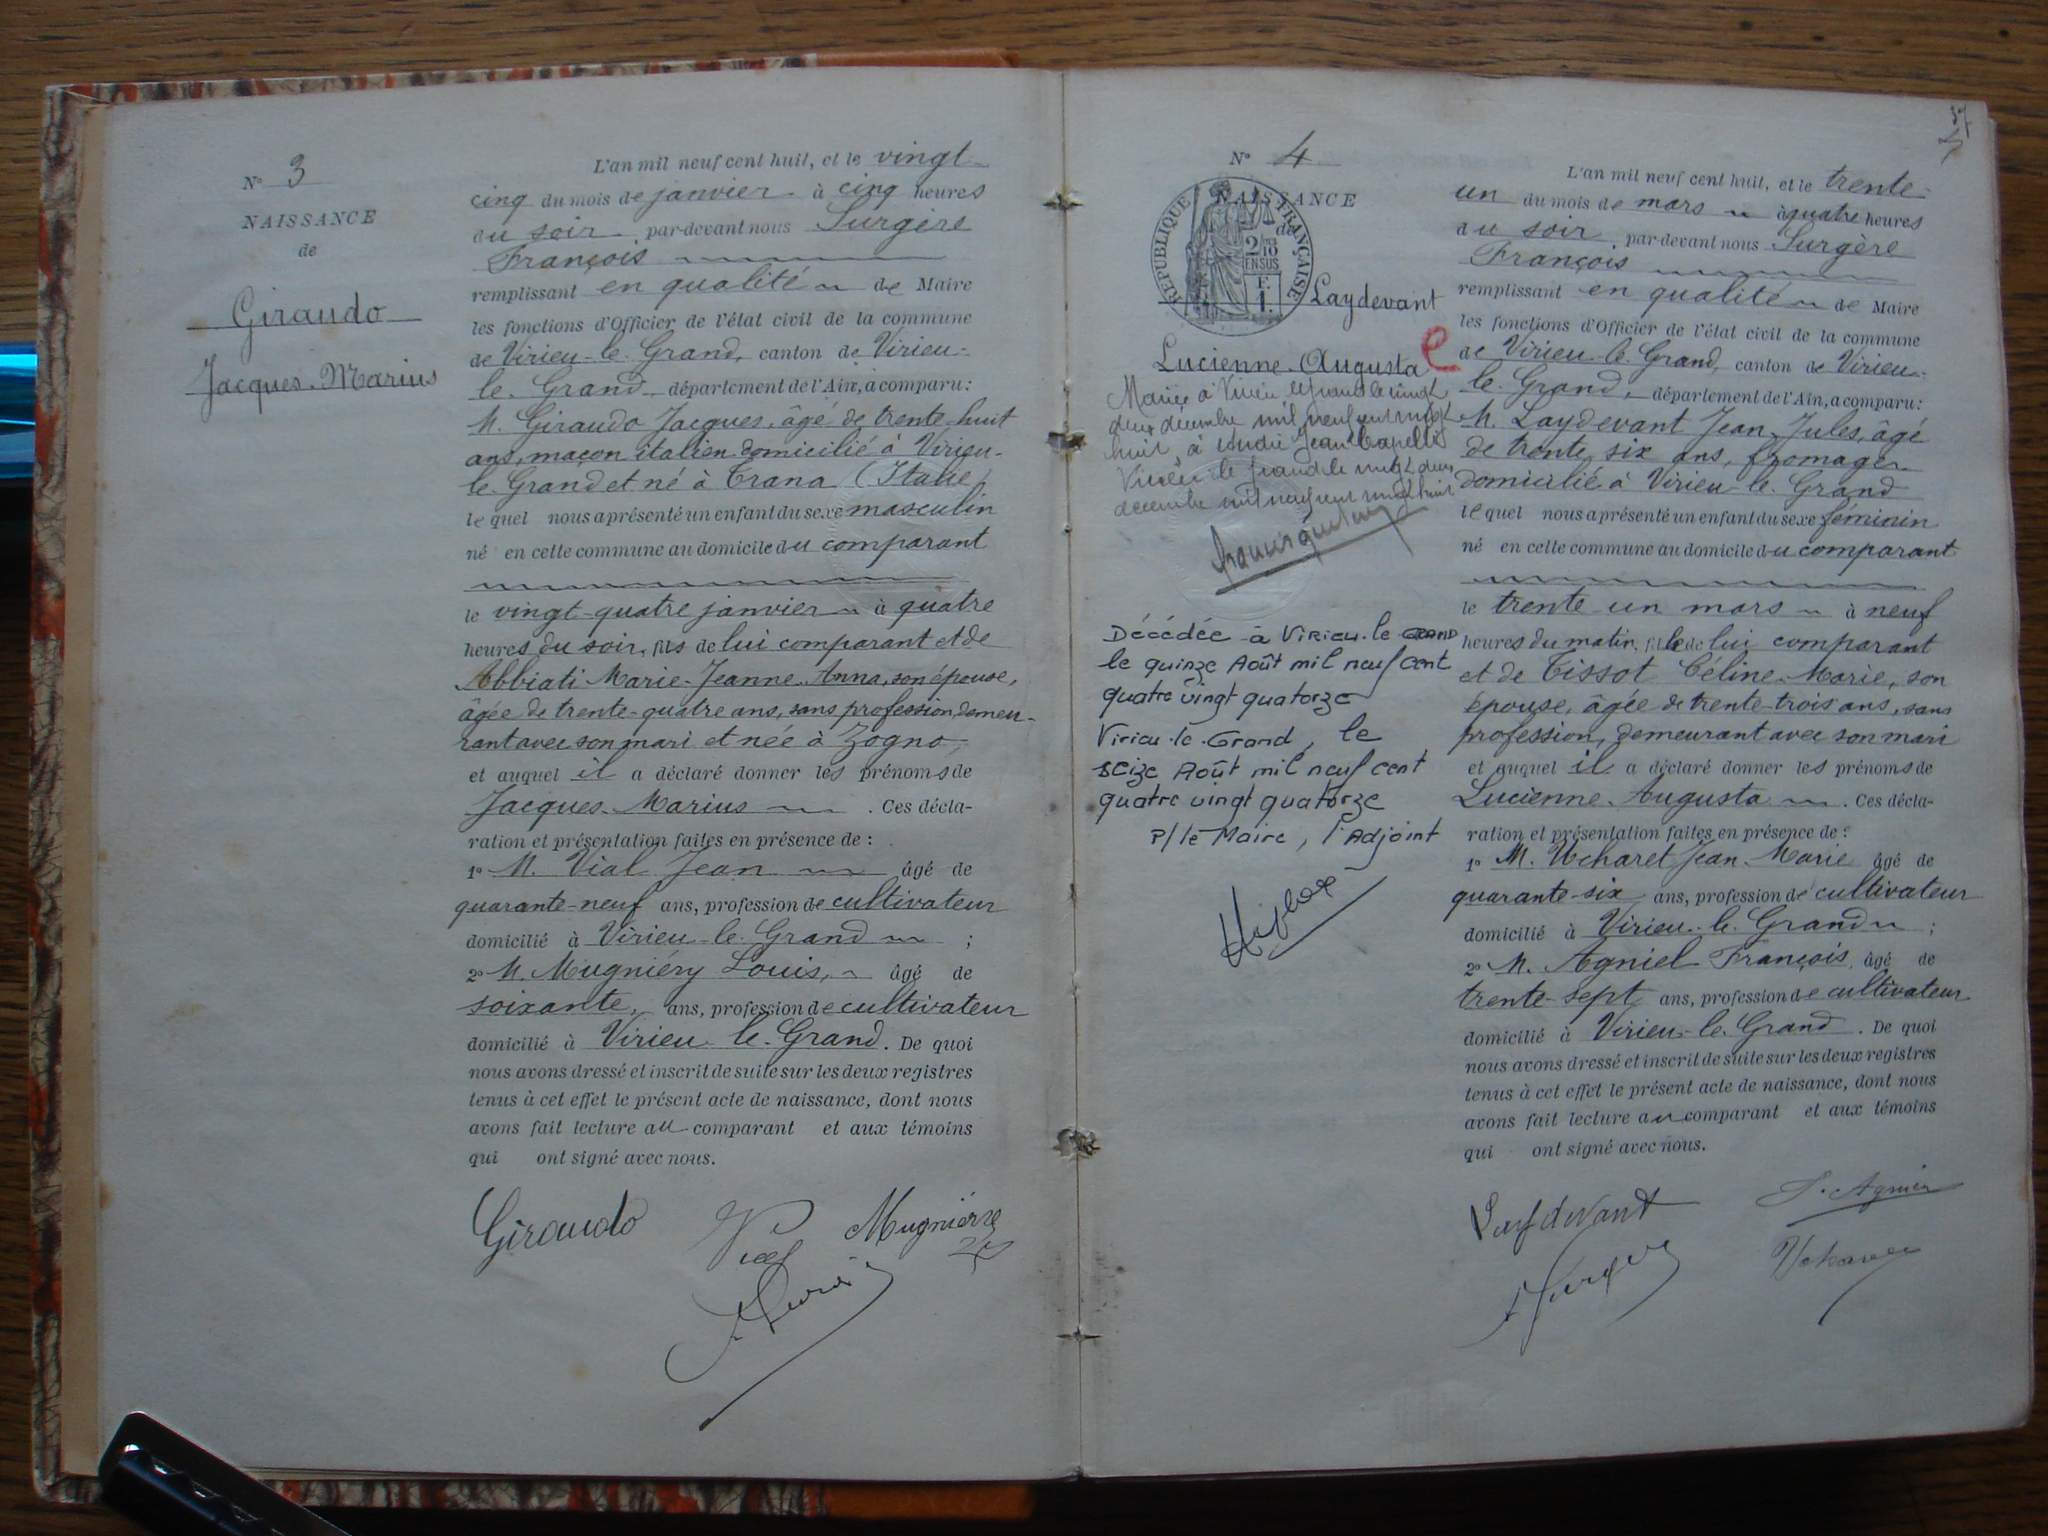 N° 3
NAISSANCE
de
Giraudo
Jacques-Marius
L'an mil neuf cent huit, et le vingt-
cinq du mois de janvier à cinq heures
du soir par-devant nous Surgère
François
remplissant en qualité de Maire
les fonctions d'Officier de l'état civil de la commune
de Virieu-le-Grand, canton de Virieu-
le-Grand, département de l'Ain, a comparu:
M. Giraudo Jacques, âgé de trente-huit
ans, maçon italien domicilié à Virieu-
le-Grand et né à Trana (Italie)
lequel nous a présenté un enfant du sexe masculin
né en cette commune au domicile du comparant
le vingt-quatre janvier à quatre
heures du soir, fils de lui comparant et de
Abbiati Marie-Jeanne-Anna, son épouse,
âgée de trente-quatre ans, sans profession, demeu-
rant avec son mari et née à Zogno,
et auquel il a déclaré donner les prénoms de
Jacques-Marius. Ces décla-
ration et présentation faites en présence de :
1° M. Vial Jean âgé de
quarante-neuf ans, profession de cultivateur
domicilié à Virieu-le-Grand ;
2° M. Mugniéry Louis, âgé de
soixante, ans, profession de cultivateur
domicilié à Virieu-le-Grand. De quoi
nous avons dressé et inscrit de suite sur les deux registres
tenus à cet effet le présent acte de naissance, dont nous
avons fait lecture au comparant et aux témoins
qui ont signé avec nous.
Giraudo Vial
N° 4
NAISSANCE
de
RÉPUBLIQUE FRANÇAISE
2/10
EN SUS
F.
1.
Laydevant
Lucienne-Augusta
Mariée à Virieu le grand le vingt
deux décembre mil neuf cent vingt
huit, à Jean
Virieu le grand le vingt deux
décembre mil neuf cent vingt huit
Décédée à Virieu-le-Grand
le quinze Août mil neuf cent
quatre vingt quatorze
Virieu-le-Grand, le
seize Août mil neuf cent
quatre vingt quatorze
P/le Maire, l'Adjoint
L'an mil neuf cent huit, et le trente-
un du mois de mars à quatre heures
du soir, par-devant nous Surgère
François
remplissant en qualité de Maire
les fonctions d'Officier de l'état civil de la commune
de Virieu-le-Grand, canton de Virieu-
le-Grand, département de l'Ain, a comparu:
M. Laydevant Jean-Jules, âgé
de trente-six ans, fromager
domicilié à Virieu-le-Grand
lequel nous a présenté un enfant du sexe féminin
né en cette commune au domicile du comparant
le trente-un mars à neuf
heures du matin, fille de lui comparant
et de Tissot Céline-Marie, son
épouse, âgée de trente-trois ans, sans
profession, demeurant avec son mari
et auquel il a déclaré donner les prénoms de
Lucienne-Augusta. Ces décla-
ration et présentation faites en présence de :
1° M. Ucharet Jean-Marie âgé de
quarante-six ans, profession de cultivateur
domicilié à Virieu-le-Grand ;
2° M. Agniel François, âgé de
trente-sept ans, profession de cultivateur
domicilié à Virieu-le-Grand. De quoi
nous avons dressé et inscrit de suite sur les deux registres
tenus à cet effet le présent acte de naissance, dont nous
avons fait lecture au comparant et aux témoins
qui ont signé avec nous.
Laydevant